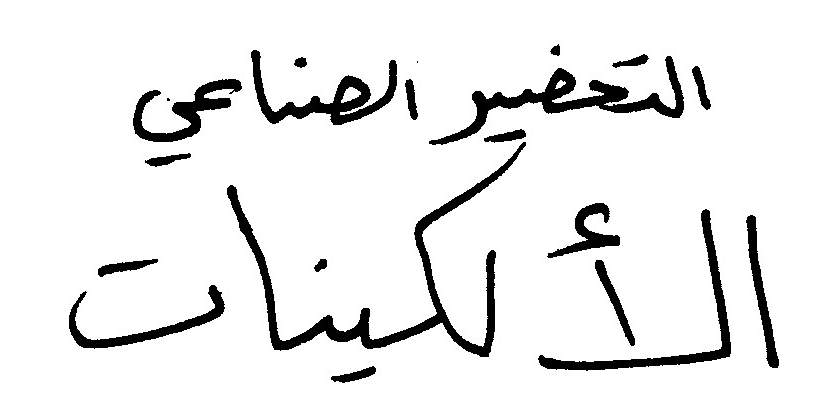 التحضير الصناعي
الألكينات